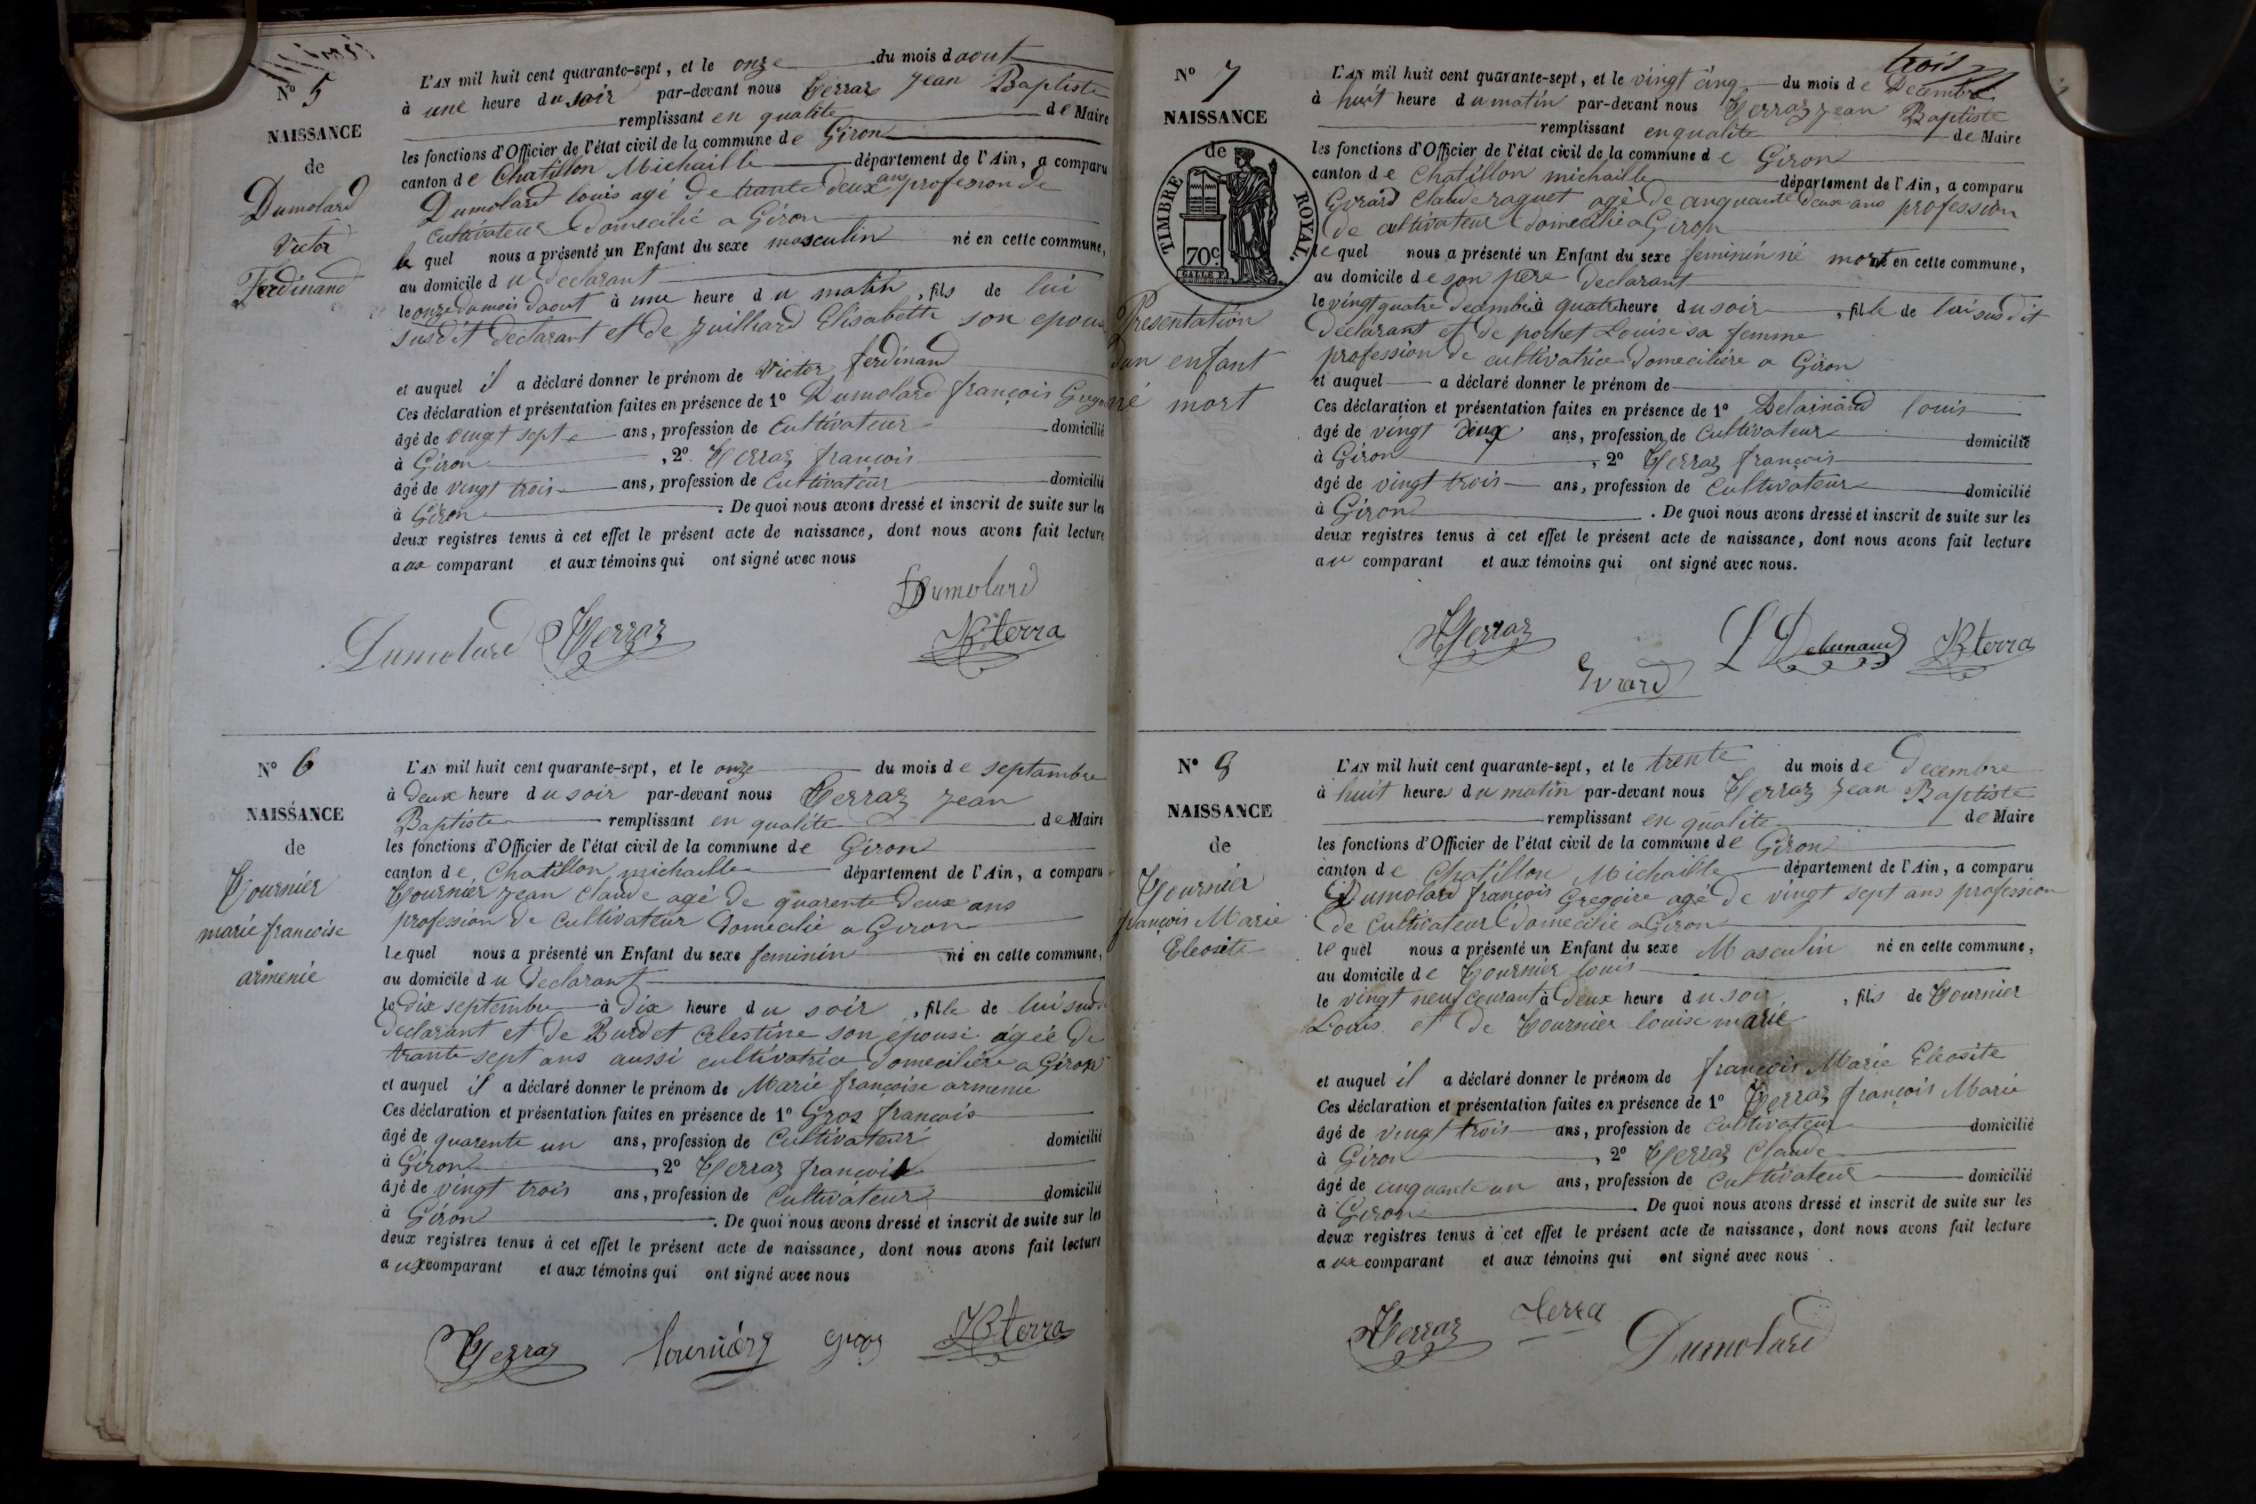 N° 5
NAISSANCE
de
Dumolard
Victor
Ferdinand
L'AN mil huit cent quarante-sept, et le onze du mois d aout
à une heure du soir par-devant nous Terraz Jean Baptiste
remplissant en qualite de Maire
les fonctions d'Officier de l'état civil de la commune de Giron
canton de Chatillon Michaille département de l'Ain, a comparu
Dumolard louis agé de trante deux ans profesion de
cultivateur domecilié a Giron
le quel nous a présenté un Enfant du sexe masculin né en cette commune,
au domicile du declarant
le onze du mois daout à une heure du matin, fils de lui
susdit declarant et de Juilliard Elisabette son epouse
et auquel il a déclaré donner le prénom de Victor ferdinand
Ces déclaration et présentation faites en présence de 1° Dumolard françois
âgé de vingt sept ans, profession de Cultivateur domicilié
à Giron, 2° Terraz francois
âgé de vingt trois ans, profession de Cultivateur domicilié
à Giron. De quoi nous avons dressé et inscrit de suite sur les
deux registres tenus à cet effet le présent acte de naissance, dont nous avons fait lecture
aux comparant et aux témoins qui ont signé avec nous
Dumolard
Dumolard Terraz JB terra
N° 6
NAISSANCE
de
Tournier
marie francoise
armenie
L'AN mil huit cent quarante-sept, et le onze du mois de septambre
à deux heure du soir par-devant nous Terraz Jean
Baptiste remplissant en qualite de Maire
les fonctions d'Officier de l'état civil de la commune de Giron
canton de Chatillon michaille département de l'Ain, a comparu
Tournier Jean Claude agé de quarente deux ans
profession de cultivateur domecilié a Giron
le quel nous a présenté un Enfant du sexe feminin né en cette commune,
au domicile du declarant
le dix septembre à dix heure du soir, fille de lui susd
declarant et de Burdet Celestine son epouse agée de
trante sept ans aussi cultivatrice domeciliére a Giron
et auquel il a déclaré donner le prénom de Marie françoise armenie
Ces déclaration et présentation faites en présence de 1° Gros francois
âgé de quarente un ans, profession de Cultivateur domicilié
à Giron, 2° Terraz francois
âgé de vingt trois ans, profession de Cultivateur domicilié
à Giron. De quoi nous avons dressé et inscrit de suite sur les
deux registres tenus à cet effet le présent acte de naissance, dont nous avons fait lecture
aux comparant et aux témoins qui ont signé avec nous
Terraz tournier gros JB terra
trois
N° 7
NAISSANCE
de
TIMBRE ROYAL
70c
Presentation
dun enfant
né mort
L'AN mil huit cent quarante-sept, et le vingt cinq du mois de Decembre
à huit heure du matin par-devant nous Terraz Jean Baptiste
remplissant en qualite de Maire
les fonctions d'Officier de l'état civil de la commune de Giron
canton de Chatillon michaille département de l'Ain, a comparu
Evrard Claude raguet agé de cinquante deux ans profession
de cultivateur domecilié a Giron
le quel nous a présenté un Enfant du sexe feminin né mort né en cette commune,
au domicile de son père declarant
le vingt quatre decembre à quatre heure du soir, fille de lui susdit
declarant et de pochet Louise sa femme
profession de cultivatrice domeciliére a Giron
et auquel a déclaré donner le prénom de
Ces déclaration et présentation faites en présence de 1° Delainaud louis
âgé de vingt deux ans, profession de Cultivateur domicilié
à Giron, 2° Terraz françois
âgé de vingt trois ans, profession de Cultivateur domicilié
à Giron. De quoi nous avons dressé et inscrit de suite sur les
deux registres tenus à cet effet le présent acte de naissance, dont nous avons fait lecture
au comparant et aux témoins qui ont signé avec nous.
Terraz Evrard JB terra
N° 8
NAISSANCE
de
Tournier
françois Marie
Eleosite
L'AN mil huit cent quarante-sept, et le trente du mois de Decembre
à huit heures du matin par-devant nous Terraz Jean Baptiste
remplissant en qualite de Maire
les fonctions d'Officier de l'état civil de la commune de Giron
canton de Chatillon Michaille département de l'Ain, a comparu
Dumolard françois Gregoire agé de vingt sept ans profession
de cultivateur domecilié a Giron
le quel nous a présenté un Enfant du sexe Masculin né en cette commune,
au domicile de Tournier louis
le vingt neuf courant à deux heure du soir, fils de Tournier
Louis et de Tournier louise marie
et auquel il a déclaré donner le prénom de françois Marie Eleosite
Ces déclaration et présentation faites en présence de 1° Terraz françois Marie
âgé de vingt trois ans, profession de Cultivateur domicilié
à Giron, 2° Terraz Claude
âgé de cinquante un ans, profession de Cultivateur domicilié
à Giron. De quoi nous avons dressé et inscrit de suite sur les
deux registres tenus à cet effet le présent acte de naissance, dont nous avons fait lecture
aux comparant et aux témoins qui ont signé avec nous.
Terraz terra Dumolard